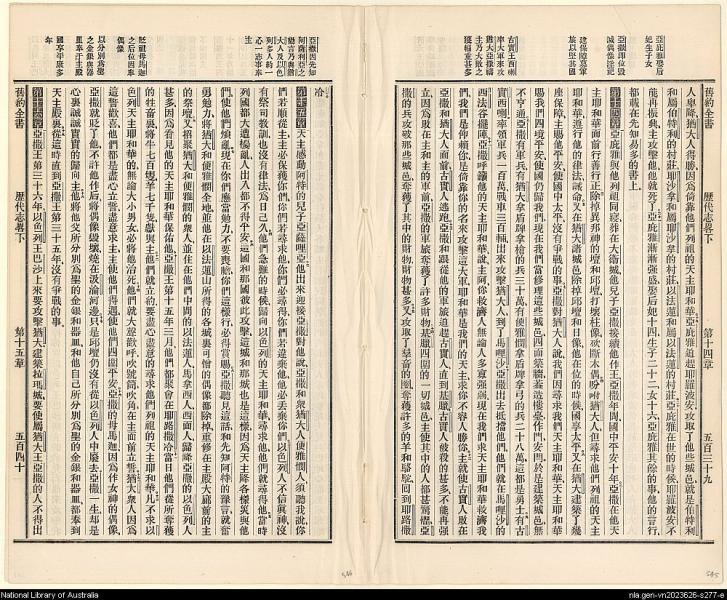 亞庇雅娶后妃生子女
亞撒即位毀誠偶像淫祀
建保障募軍旅以堅其國
古實王西喇率大軍來攻猶大亞撒禱主乃大敗之獲輜重甚多
舊約全書
歷代志畧下
第十四章
五百三十九
人卑降猶大人得勝因為倚靠他們列祖的天主耶和華亞庇雅追趕耶羅波安攻取了他的城邑就是伯特利
和屬伯特利的村莊耶沙拿和屬耶沙拿的村莊以法蓮和屬以法蓮的村莊亞庇雅在世的時候耶羅波安不
能再振興主攻擊他他就死了亞庇雅漸漸强盛娶后妃十四生子二十二女十六亞庇雅其餘的事他的言行
都載在先知易多的書上
第十四章亞庇雅與他列祖同寢葬在大衛城他兒子亞撒接續他作王亞撒年間國中平安十年亞撒在他天
主耶和華面前行善行正除掉異邦神的壇和邱壇打壞柱像砍斷木偶吩咐猶大人但尋求他們列祖的天主
耶和華遵行他的律法誡命又在猶大諸城邑除掉邱壇和日像他在位的時候國享太平又在猶大建築了幾
座保障主賜他平安使國中太平沒有爭戰的事亞撒對猶大人說我們因尋求我們天主耶和華天主耶和華
賜我們四境平安使國仍歸我們現在我們當修理這些城邑四面築牆蓋造樓臺作門安閂於是建築城邑無
不亨通亞撒有軍兵有猶大拿盾牌拿槍的兵三十萬有便雅憫拿盾牌拿弓的兵二十八萬這都是勇士有古
實西喇率領軍兵一百萬戰車三百輛出來攻擊猶大人到了馬哩沙亞撒出去抵擋他他們就在馬哩沙的
西法谷擺陣亞撒呼籲他的天主耶和華說主阿你救濟人無論人多寡强弱現在我們求天主耶和華救濟我
們我們是仰賴你是倚靠你的名來攻擊這大軍耶和華是我們的天主求你不容人勝你主就使古實人敗在
亞撒和猶大人面前古實人逃跑亞撒和跟從他的軍旅追趕古實人直到基臘古實人被殺的甚多不能再强
立因為敗在主和主的軍前亞撒的軍旅奪獲了許多財物基臘四圍的一切城邑主使其中的人都甚驚懼亞
撒的兵攻破那些城邑奪獲了其中的財物財物甚多又攻取了羣畜的圈奪獲許多的羊和駱駝回到耶路撒
亞撒因先知阿薩利亞之憂言乃與猶大人及以色列多人一心一志事奉主
貶祖母馬迦之后位因奉偶像
以分別為聖之金銀與器皿奉于主殿
國享平康多年
舊約全書
歷代志畧下
第十五章
五百四十
冷
第十五章天主感動阿特的兒子亞薩哩亞他出來迎接亞撒對他說亞撒和衆猶大人便雅憫人須聽我說你
們若順從主主必保護你們你們若尋求他你們必尋得你們若違棄他他必丟棄你們以色列人不信眞神沒
有祭司教訓也沒有律法為日已久他們急難的時候歸向以色列的天主耶和華尋求他他們就尋得他當時
列國都大遭擾亂人出入都不得平安這國和那國彼此攻擊這城和那城也是這樣因為天主降各樣災與他
們使他們煩亂現在你們應當勉力不要喪膽你們這樣行必得賞賜亞撒聽見這話和先知阿特的豫言就奮
勇勉力將猶大和便雅憫全地並他在以法蓮山所得的各城裏可憎的偶像都除掉重修在主殿大廊前的主
的祭壇又招聚猶大和便雅憫的衆人並住在他們中間的以法蓮人馬拿西人西面人歸降亞撒的以色列人
甚多因為看見他的天主耶和華保佑他亞撒王第十五年三月他們都聚會在耶路撒冷當日他們從所奪獲
的牲畜裏將牛七百隻羊七千隻獻與主他們就立約要盡心盡意的尋求他們列祖的天主耶和華凡不求以
色列天主耶和華的無論大小男女必將他治死他們就大聲歡呼吹號筒吹角在主面前立誓猶大衆人因為
這誓歡喜他們都是盡心立誓盡意求主主使他們得遇見他使他們四圍平安亞撒的母馬迦因為作女神的偶像
亞撒就貶了他不許他作后將偶像毀壞燒在汲淪河邊只是邱壇仍沒有從以色列人中廢去亞撒一生却是
心裏誠誠實實的歸向主他將他父所分別為聖的金銀和器皿和他自己所分別為聖的金銀和器皿都奉到
天主殿裏從這時直到亞撒王第三十五年沒有爭戰的事
第十六章亞撒王第三十六年以色列王巴沙上來要攻擊猶大建築拉瑪城要使屬猶大王亞撒的人不得出
546
545
National Library of Australia
nla.gen-vn2023626-s277-e